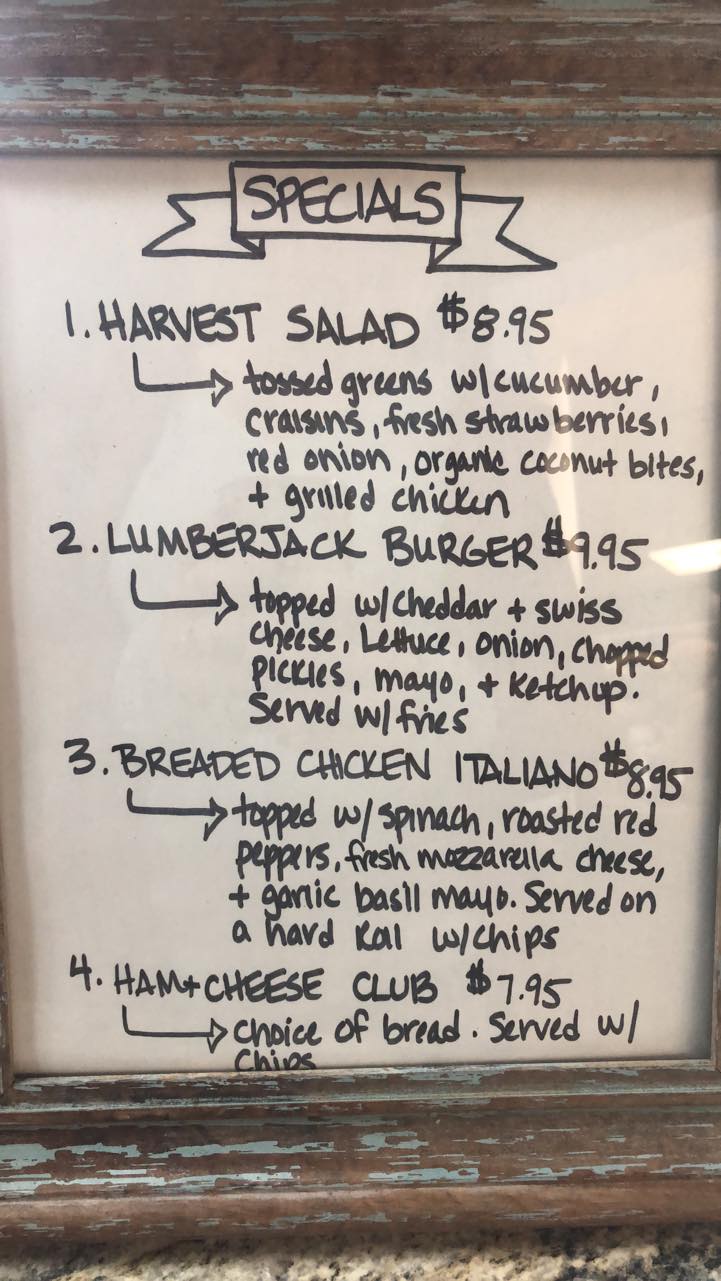 SPECIALS
1. HARVEST SALAD $8.95
tossed greens w/cucumber,
craisins, fresh strawberries,
red onion, organic coconut bites,
+ grilled chicken
2. LUMBERJACK BURGER $9.95
topped w/cheddar + swiss
cheese, Lettuce, onion, chopped
pickles, mayo, + ketchup.
Served w/fries
3. BREADED CHICKEN ITALIANO $8.95
topped w/spinach, roasted red
peppers, fresh mozzarella cheese,
+ garlic basil mayo. Served on
a hard Roll w/chips
4. HAM+CHEESE CLUB $7.95
choice of bread. Served w/
Chips